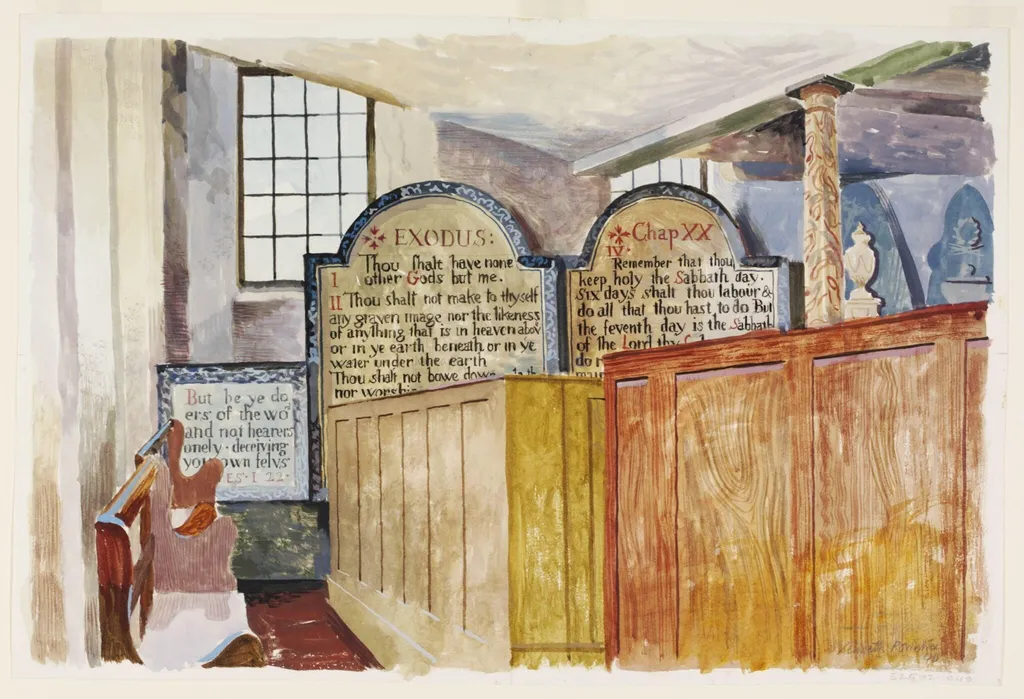 EXODUS:
I Thou shalt have none
other Gods but me.
II Thou shalt not make to thyself
any graven image nor the likeness
of anything that is in heaven abov
or in ye earth beneath or in ye
water under the earth
Thou shalt not bowe down
nor worship
Chap XX
IV.
Remember that thou
keep holy the Sabbath day.
Six days shalt thou labour &
do all that thou hast to do But
the seventh day is the Sabbath
of the Lord thy
do
But be ye do
ers of the wo
and not hearers
onely · deceiving
your own selvs
ES · I 22 ·
Kenneth Rowntree